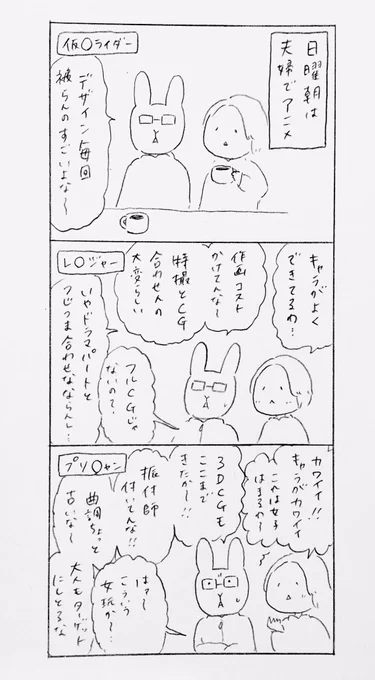 日曜朝は
夫婦でアニメ
仮〇ライダー
デザイン毎回
被らんのすごいよな〜
キャラがよく
できてるわ!
作画コスト
かけてんな〜
特撮とCG
合わせんの
大変らしい
フルCGじゃ
ないの?
レ〇ジャー
いやドラマパートと
つじつま合わせなならんし…
カワイイ!!
キャラがカワイイ
これは女子
はまるわ〜
3DCGも
ここまで
きたか〜!!
振付師
付いてんな!!
プリ〇ャン
曲調ちょっと
古いな〜
はァ〜
こういう
女玩が〜…
大人もターゲット
にしとるな